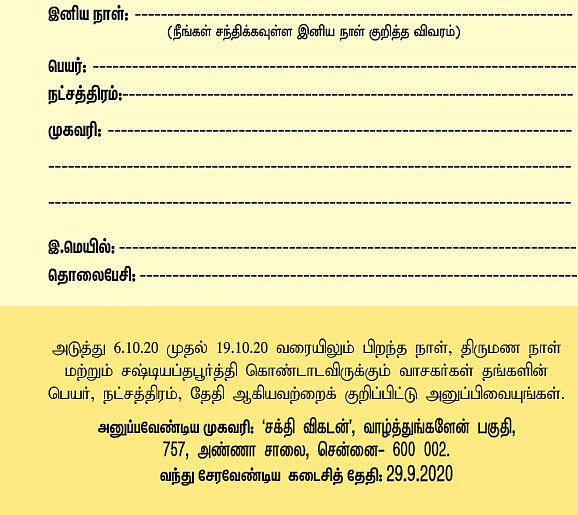 இனிய நாள்: ------------------------------------------------------------
(நீங்கள் சந்திக்கவுள்ள இனிய நாள் குறித்த விவரம்)
பெயர்: ------------------------------------------------------------------
நட்சத்திரம்:-------------------------------------------------------------
முகவரி: ---------------------------------------------------------------
------------------------------------------------------------------------
------------------------------------------------------------------------
இ.மெயில்: --------------------------------------------------------------
தொலைபேசி: -----------------------------------------------------------
அடுத்து 6.10.20 முதல் 19.10.20 வரையிலும் பிறந்த நாள், திருமண நாள்
மற்றும் சஷ்டியப்தபூர்த்தி கொண்டாடவிருக்கும் வாசகர்கள் தங்களின்
பெயர், நட்சத்திரம், தேதி ஆகியவற்றைக் குறிப்பிட்டு அனுப்பிவையுங்கள்.
அனுப்பவேண்டிய முகவரி: ‘சக்தி விகடன்’, வாழ்த்துங்களேன் பகுதி,
757, அண்ணா சாலை, சென்னை- 600 002.
வந்து சேரவேண்டிய கடைசித் தேதி: 29.9.2020